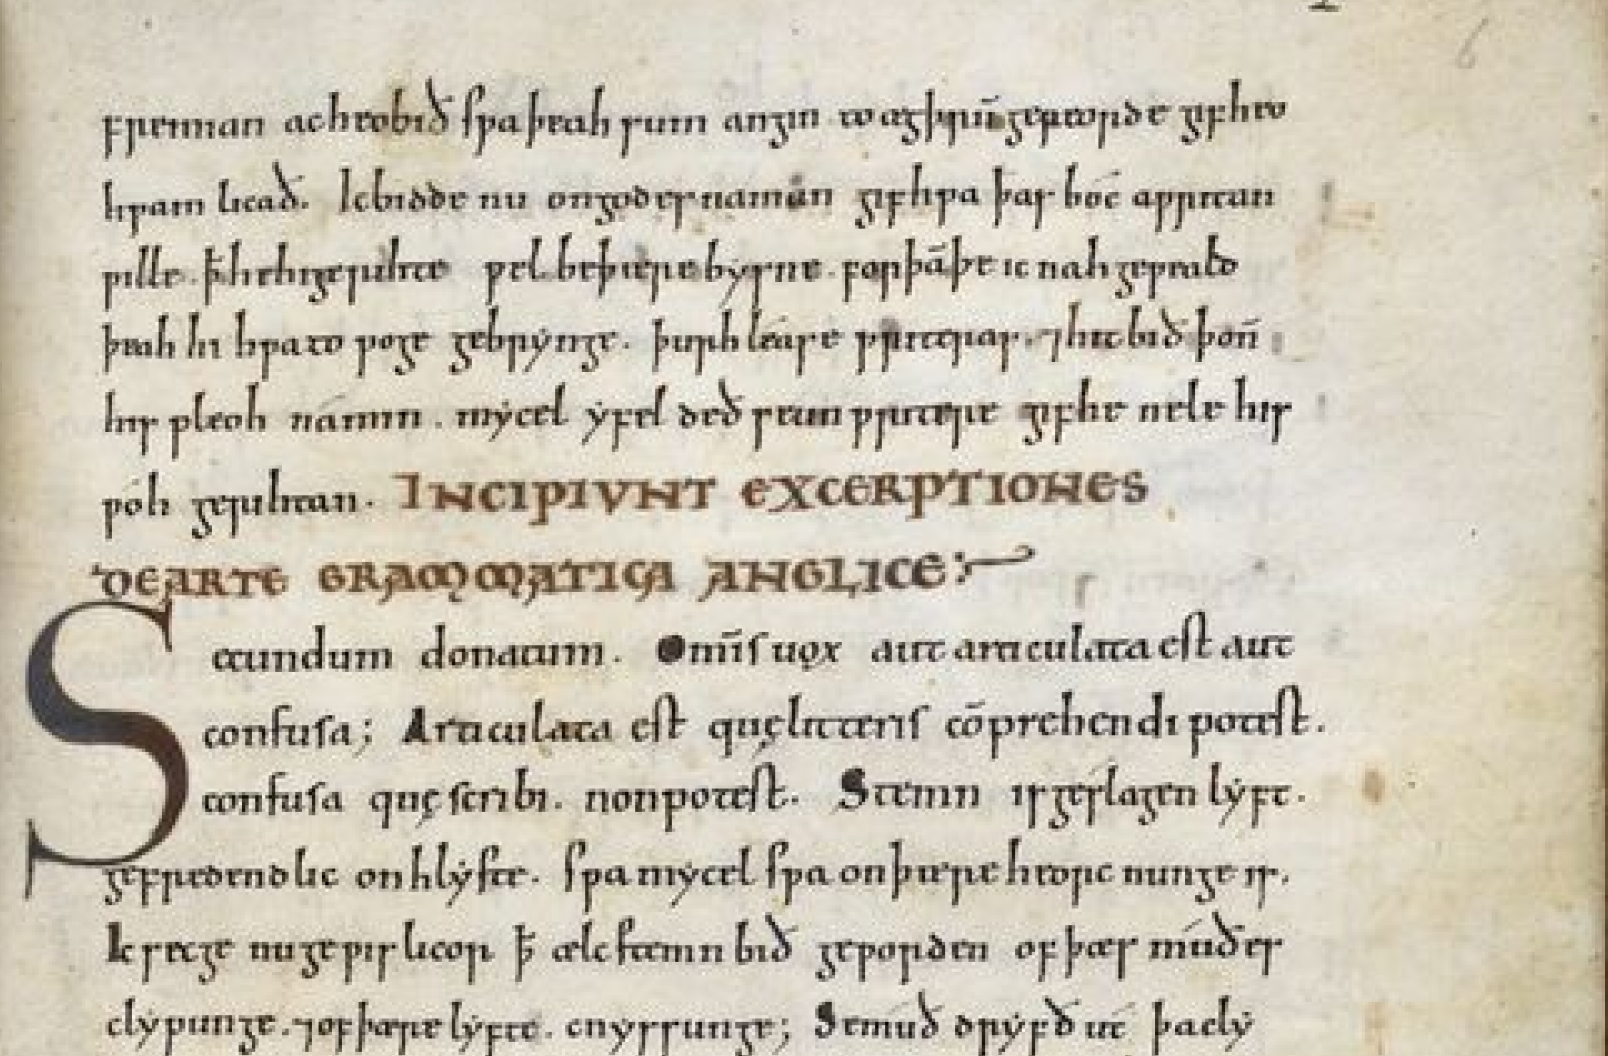 6
fremman ac heo bið swa þeah sum angin to ægþrum gereorde gif heo
hwam licað. Ic bidde nu on godes naman gif hwa þas boc awritan
wille. ꝥ he hi gerihte wel be þære bysne. forþā þe ic nah geweald
þeah hi hwa to woge gebrynge. þurh lease writeras. ⁊ hit bið þoñ
his pleoh na min. mycel yfel deð se unwritere gif he nele his
woh gerihtan. INCIPIVNT EXCERPTIONES
DE ARTE GRAMMATICA ANGLICE:
Secundum donatum. Omīs uox aut articulata est aut
confusa; Articulata est quę litteris cōprehendi potest.
confusa quę scribi. non potest. Stemn is geslagen lyft.
gefredendlic on hlyste. swa mycel swa on þære heorcnunge is.
Ic secge nu gewislicor ꝥ ælc stemn bið geworden of þæs muðes
clypunge. ⁊ of þære lyfte. cnyssunge; Se muð dryfð ut þa cly